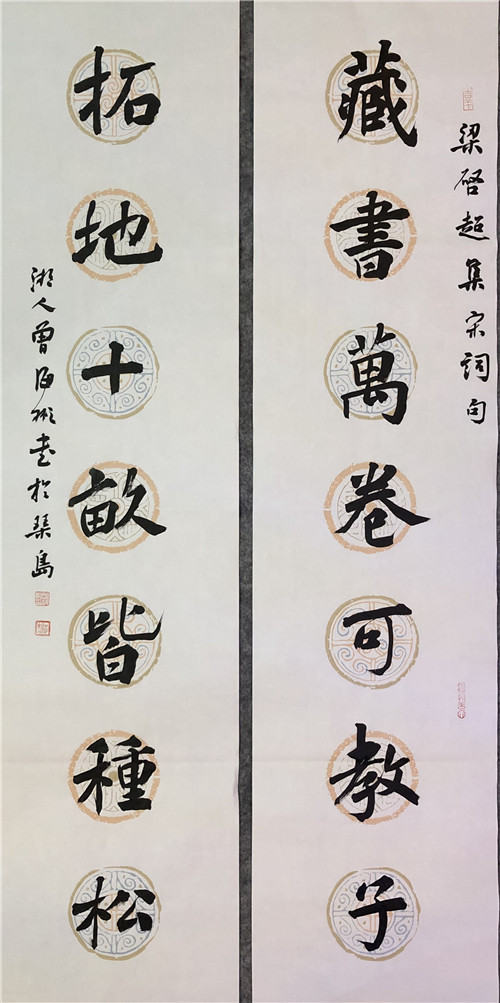 梁啓超集宋詞句
藏書萬卷可教子
拓地十畝皆種松
湘人曾海書於琴島